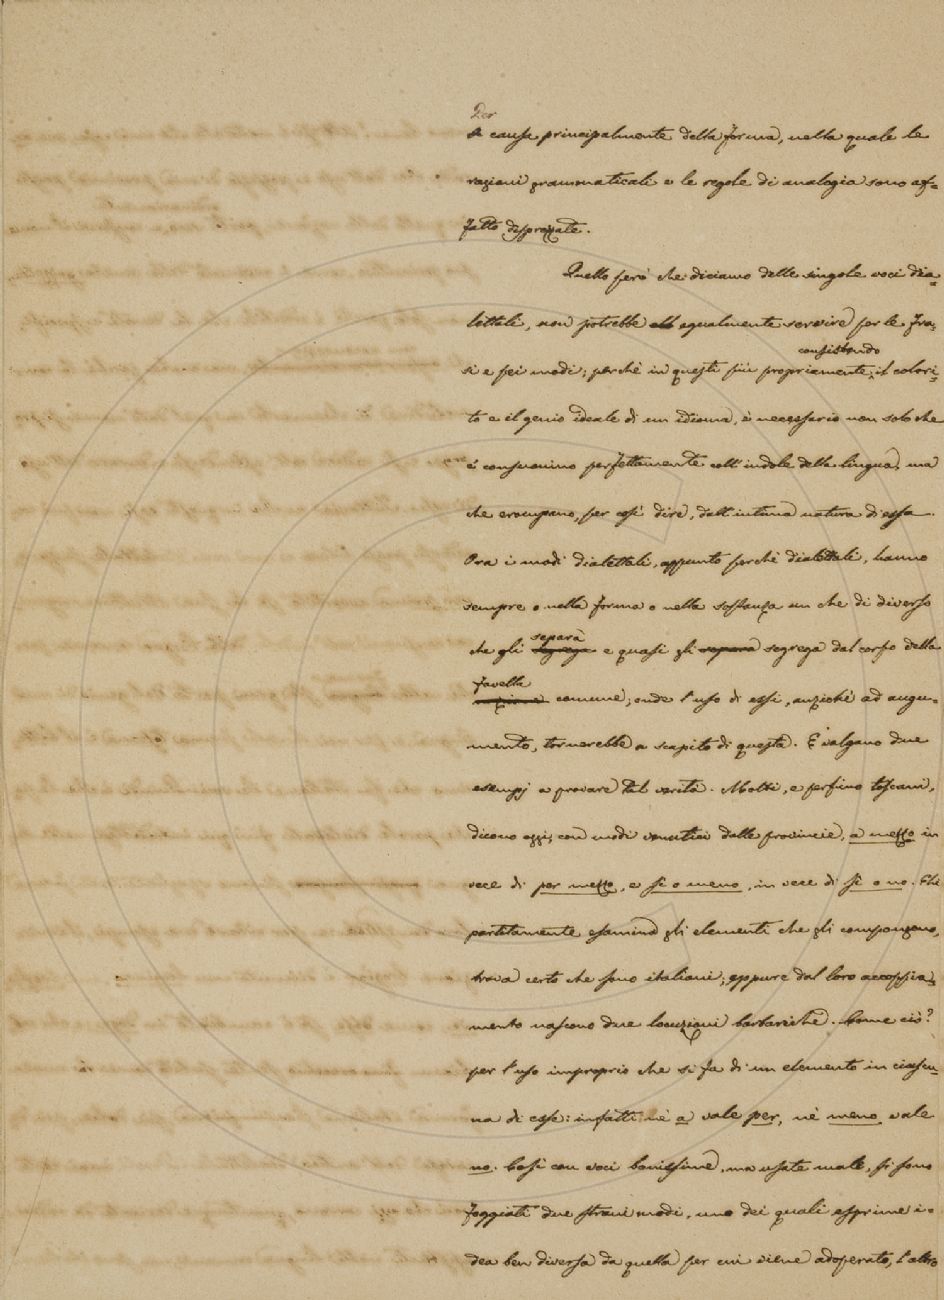 Per
a causa principalmente della forma, nella quale le
ragioni grammaticali e le regole di analogia sono af-
fatto disprezzate.
Quello però che diciamo delle singole voci dia-
lettali, non potrebbe egualmente servire per le fra-
consistendo
si e pei modi; perchè in questi più propriamente il colori-
to e il genio ideale di un idioma, è necessario non solo che
e' consuonino perfettamente coll'indole della lingua, ma
che erompano, per così dire, dall'intima natura di essa.
Ora i modi dialettali, appunto perchè dialettali, hanno
sempre o nella forma o nella sostanza un che di diverso
separa
che gli segrega e quasi gli separa segrega dal corpo della
favella
nazione comune; onde l'uso di essi, anzichè ad augu-
mento, tornerebbe a scapito di questa. E valgano due
esempj a provare tal verità. Molti, e perfino toscani,
dicono oggi, con modi venutici dalle provincie, a mezzo in
vece di per mezzo, e sì o meno, in vece di sì o no. Chi
partitamente esamina gli elementi che gli compongono,
trova certo che sono italiani; eppure dal loro accoppia-
mento nascono due locuzioni barbariche. Come ciò?
per l'uso improprio che si fa di un elemento in ciascu-
na di esse: infatti nè a vale per, nè meno vale
no. Così con voci bonissime, ma usate male, si sono
foggiati due strani modi, uno dei quali esprime i-
dea ben diversa da quella per cui viene adoperato, l'altro